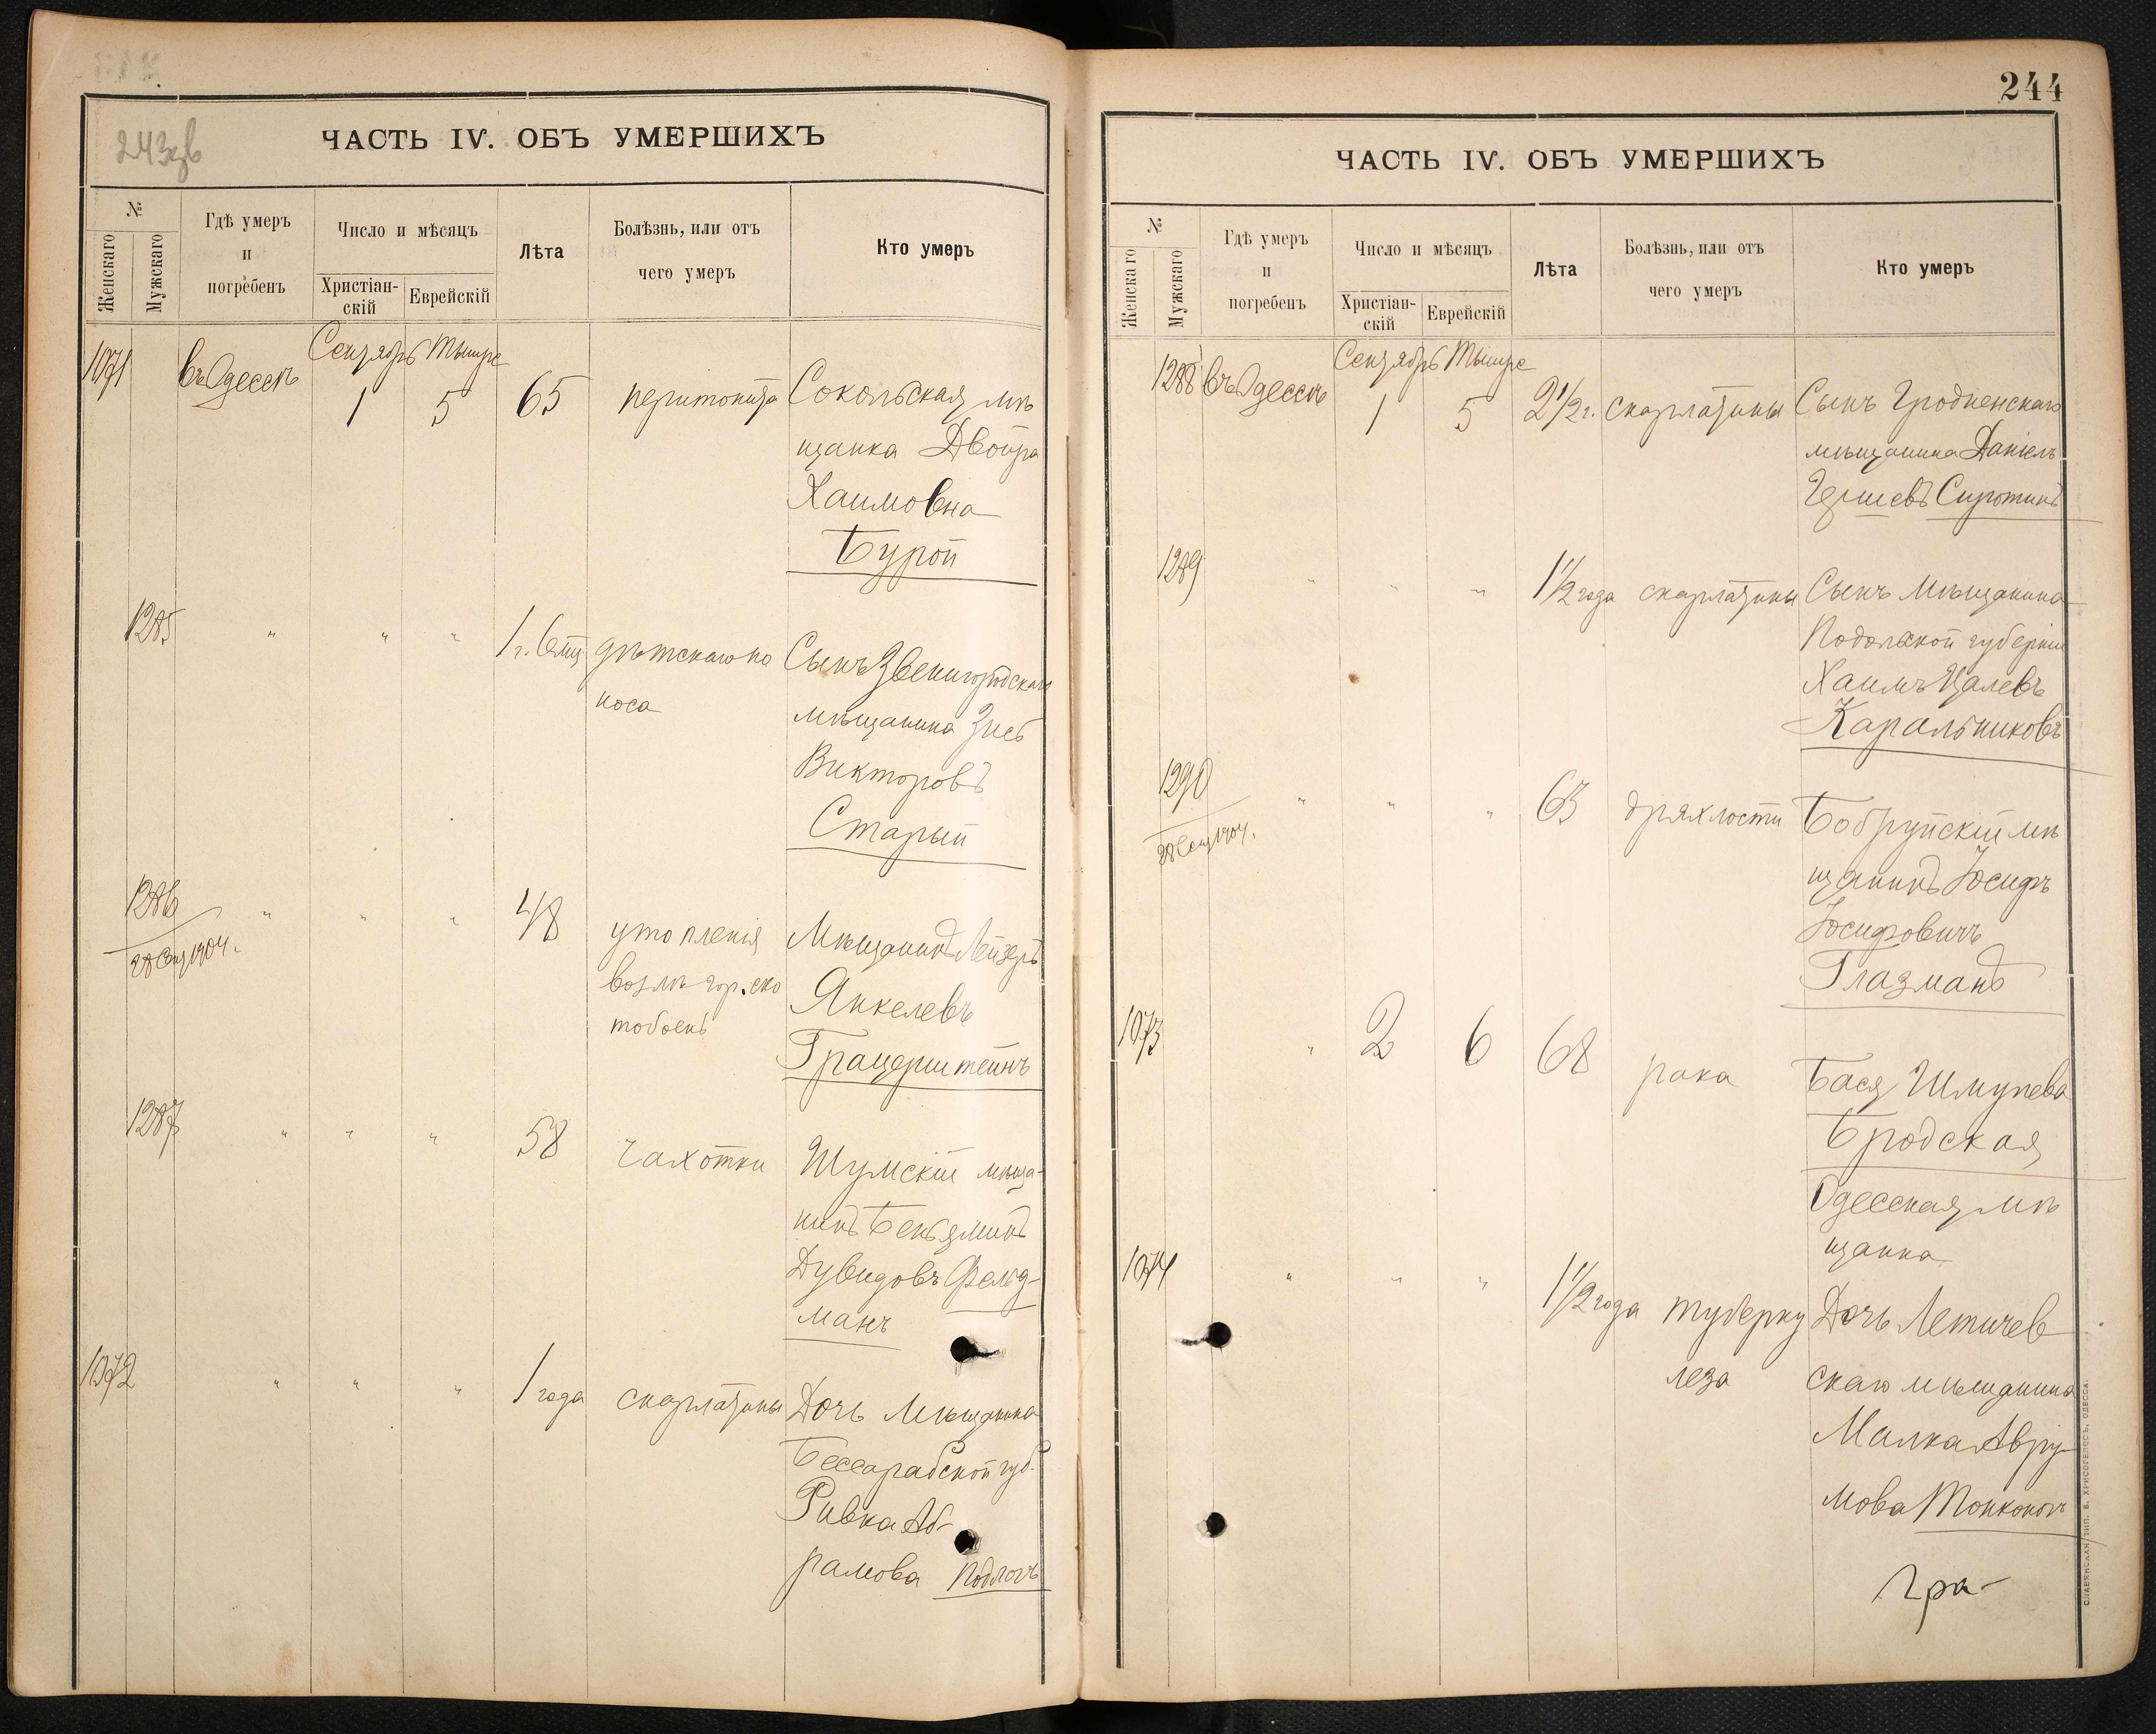 243 об
ЧАСТЬ IV. ОБЪ УМЕРШИХЪ
№
Женскаго
Мужскаго
Гдѣ умеръ
и
погребенъ
Число и мѣсяцъ
Христіан-
скій
Еврейскій
Лѣта
Болѣзнь, или отъ
чего умеръ
Кто умеръ
Сентябрь Тышре
1071 въ Одессѣ 1 5 65 перитонита Сокольская мѣ
щанка Двойра
Хаимовна
Бурой
1285 " " " 1 г. 6 мц дѣтскаго по
носа
Сынъ Звенигородскаго
мѣщанина Зусь
Викторовъ
Старый
1286 " " " 48 утопленія
возлѣ гор. ско
тобоенъ
28 Сен 1904.
Мѣщанинъ Лейзеръ
Янкелевъ
Грацерштейнъ
1287 " " " 58 чахотки Шумскій мѣща-
нинъ Беньяминъ
Дувидовъ Фельд-
манъ
1072 " " " 1 года скарлатины Дочь мѣщанина
Бессарабской губ.
Ривка Аб-
рамова Подлогъ
244
ЧАСТЬ IV. ОБЪ УМЕРШИХЪ
№
Женскаго
Мужскаго
Гдѣ умеръ
и
погребенъ
Число и мѣсяцъ
Христіан-
скій
Еврейскій
Лѣта
Болѣзнь, или отъ
чего умеръ
Кто умеръ
Сентябрь Тышре
1288 въ Одессѣ 1 5 2 1/2 г. скарлатины Сынъ Гродненскаго
мѣщанина Даніелъ
Гершевъ Сиротинъ
1289 " " " 1 1/2 года скарлатины Сынъ мѣщанина
Подольской губерніи
Хаимъ Цалевъ
Каральниковъ
1290 " " " 63 дряхлости Бобруйскій мѣ
28 Сен 1904.
щанинъ Іосифъ
Іосифовичъ
Глазманъ
1073 " 2 6 68 рака Бася Шмулева
Бродская
Одесская мѣ
щанка
1074 " " " 1 1/2 года туберку
леза
Дочь Летичев
скаго мѣщанина
Малка Авру-
мова Тонконогъ
Гра-
СЛАВЯНСКАЯ ТИП. Е. ХРИСОГЕЛОСЪ, ОДЕССА.